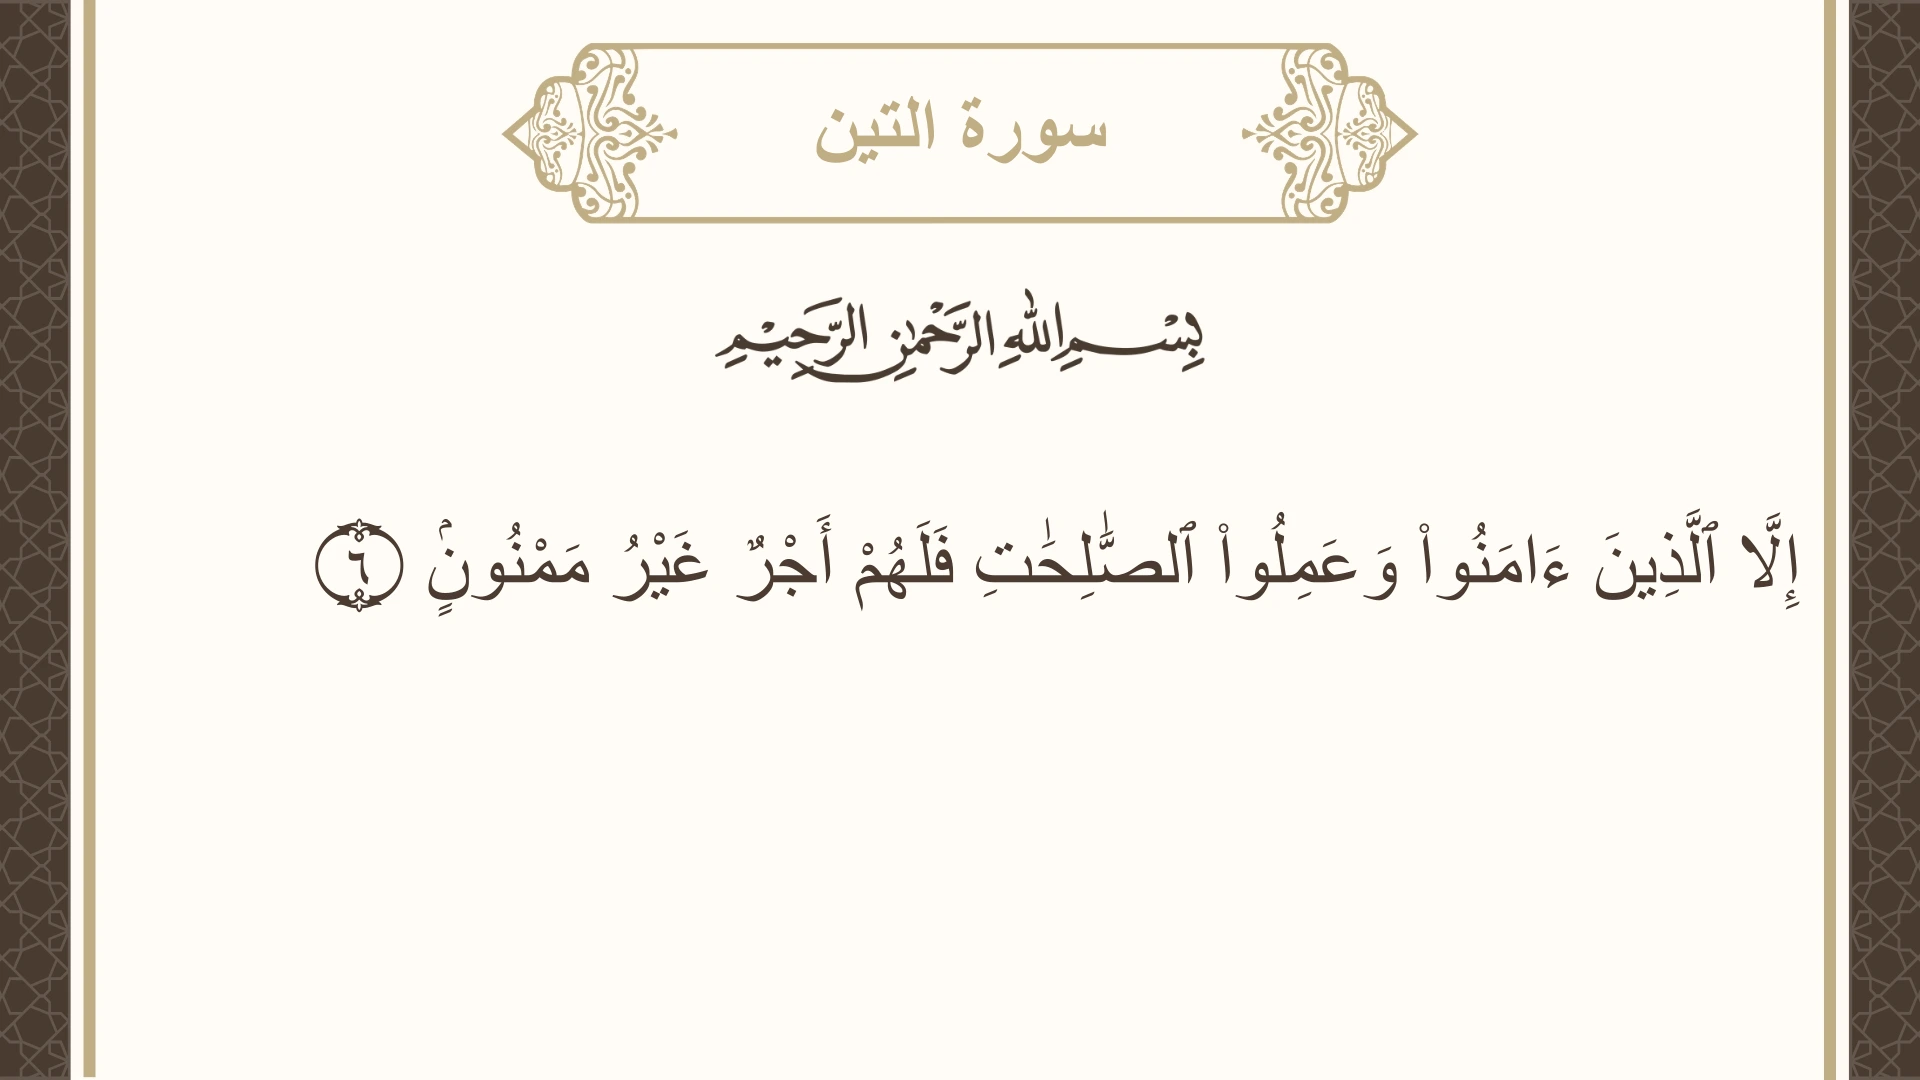 سورة التين
بِسْمِ اللهِ الرَّحْمٰنِ الرَّحِيْمِ
إِلَّا ٱلَّذِينَ ءَامَنُوا۟ وَعَمِلُوا۟ ٱلصَّٰلِحَٰتِ فَلَهُمْ أَجْرٌ غَيْرُ مَمْنُونٍۢ ٦